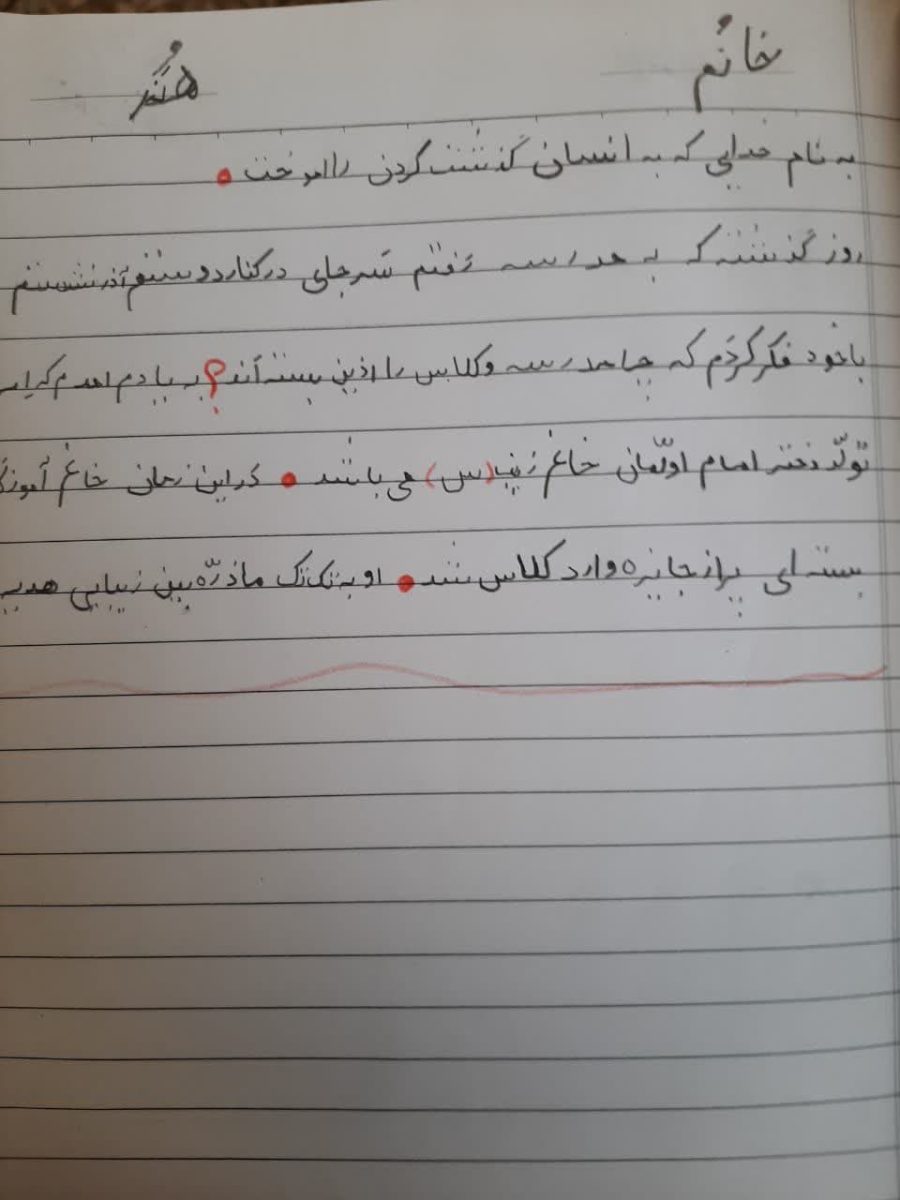 خانُم هُنَر
به نام خدایی که به انسان گذشت کردن را اموخت.
روز گذشته که به مدرسه رفتم سَر جای در کنار دوستم آذر نشستم
با خود فکر کردَم که چرا مدرسه و کلاس را اذین بسته آند؟ به یادم امدم که
تَوّلد دختر امام اوّلمان خانم زینب (س) می باشد. در این زمان خانم
بسته ای پر از جایزه وارد کلاس شد. او به تک تک ما ذرّه بین زیبایی هدیه